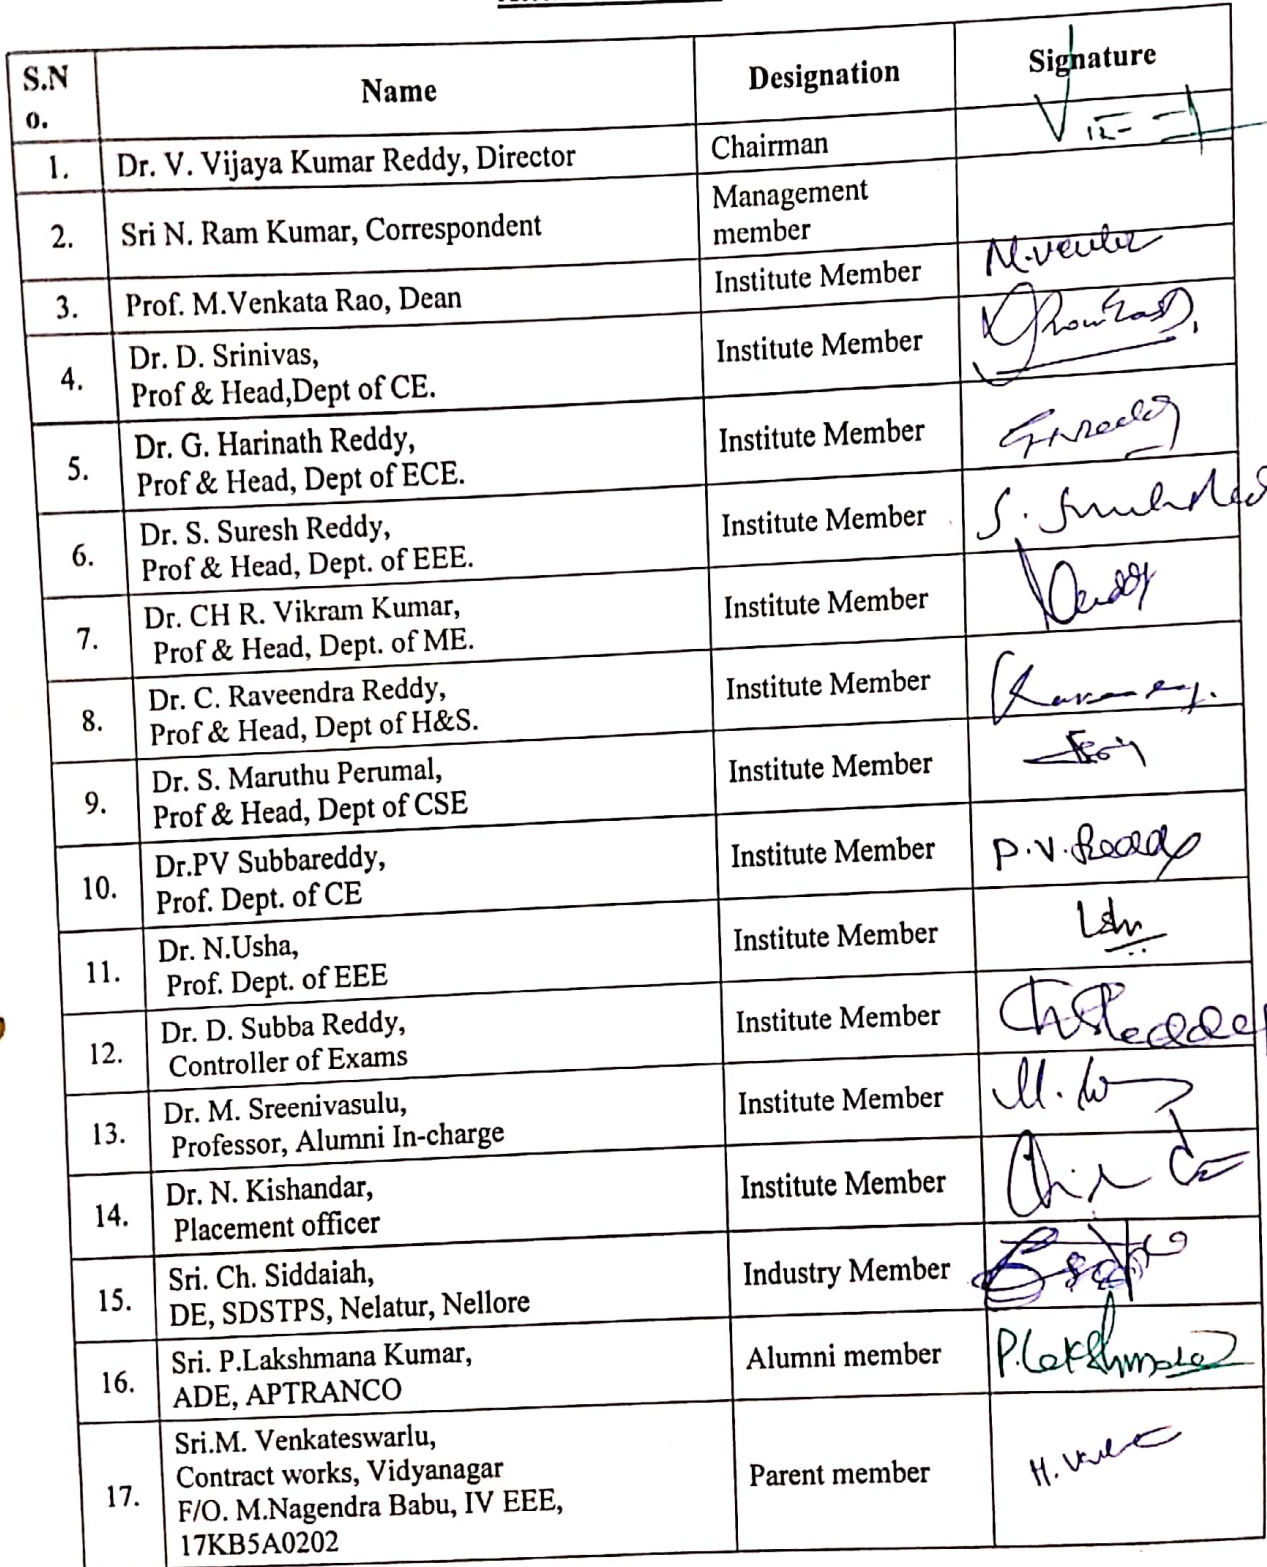 S.N
o.
Name
Designation
Signature
1.
Dr. V. Vijaya Kumar Reddy, Director
Chairman
2.
Sri N. Ram Kumar, Correspondent
Management
member
3.
Prof. M.Venkata Rao, Dean
Institute Member
4.
Dr. D. Srinivas,
Prof & Head,Dept of CE.
Institute Member
5.
Dr. G. Harinath Reddy,
Prof & Head, Dept of ECE.
Institute Member
6.
Dr. S. Suresh Reddy,
Prof & Head, Dept. of EEE.
Institute Member
7.
Dr. CH R. Vikram Kumar,
Prof & Head, Dept. of ME.
Institute Member
8.
Dr. C. Raveendra Reddy,
Prof & Head, Dept of H&S.
Institute Member
9.
Dr. S. Maruthu Perumal,
Prof & Head, Dept of CSE
Institute Member
10.
Dr.PV Subbareddy,
Prof. Dept. of CE
Institute Member
P.V.Reddy
11.
Dr. N.Usha,
Prof. Dept. of EEE
Institute Member
12.
Dr. D. Subba Reddy,
Controller of Exams
Institute Member
13.
Dr. M. Sreenivasulu,
Professor, Alumni In-charge
Institute Member
14.
Dr. N. Kishandar,
Placement officer
Institute Member
15.
Sri. Ch. Siddaiah,
DE, SDSTPS, Nelatur, Nellore
Industry Member
16.
Sri. P.Lakshmana Kumar,
ADE, APTRANCO
Alumni member
17.
Sri.M. Venkateswarlu,
Contract works, Vidyanagar
F/O. M.Nagendra Babu, IV EEE,
17KB5A0202
Parent member